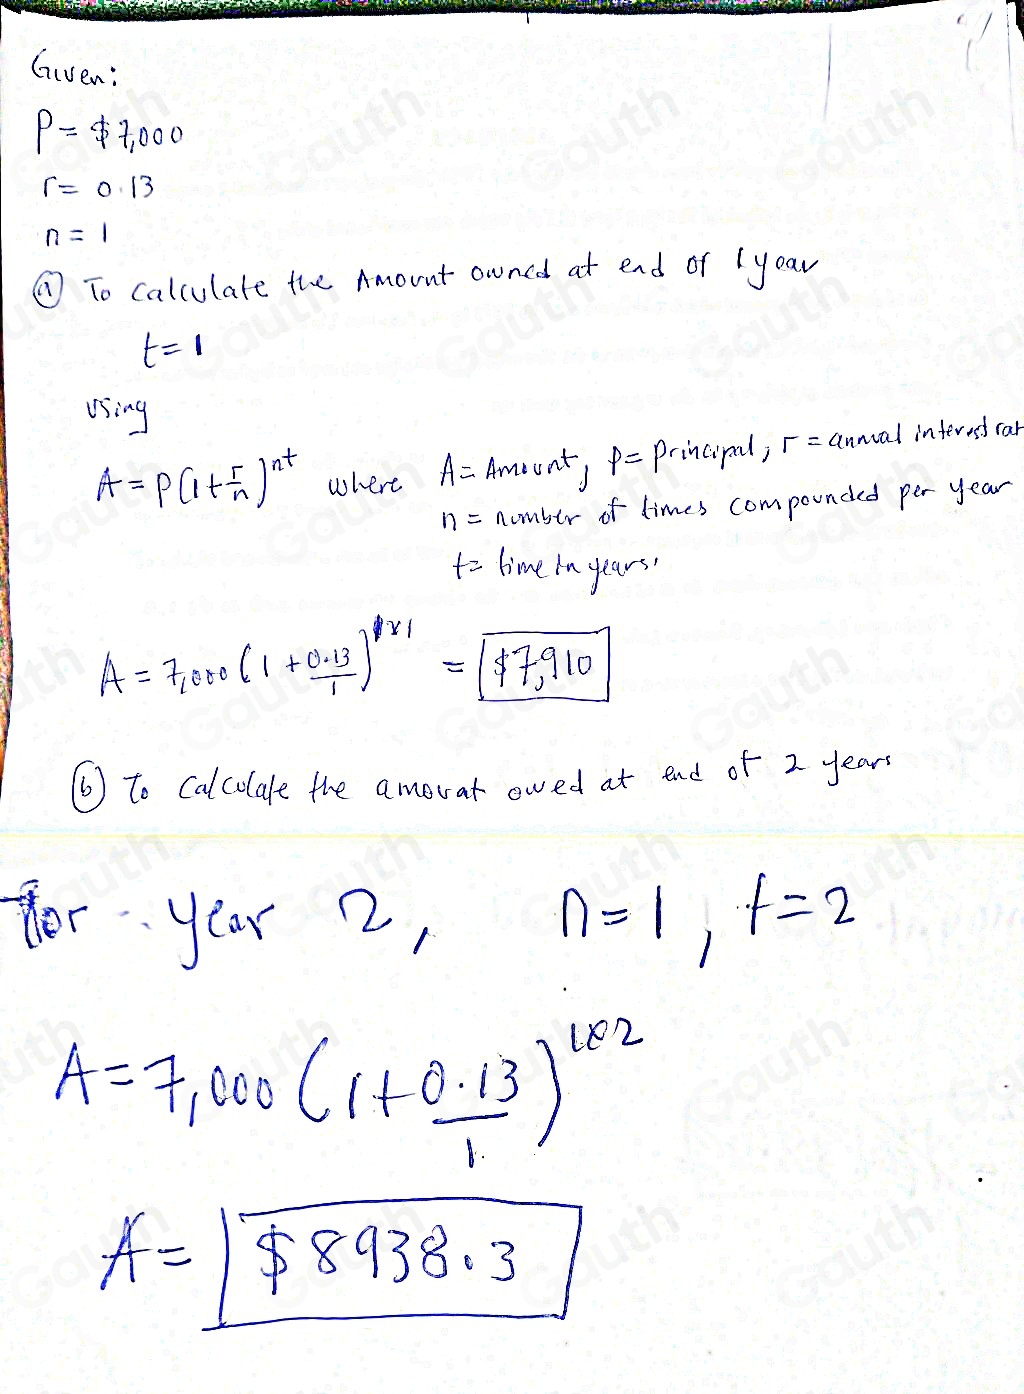 Given:
P = $7,000
r = 0.13
n = 1
(a) To calculate the Amount owned at end of 1 year
t = 1
using
A = P(1+r/n)^nt where A = Amount, P = Principal, r = annual interest rat
n = number of times compounded per year
t = time in years.
A = 7,000 (1 + 0.13/1)^1×1 = $7,910
(b) To calculate the amount owed at end of 2 years
for year 2, n = 1, t = 2
A = 7,000 (1 + 0.13/1)^1×2
A = $8938.3